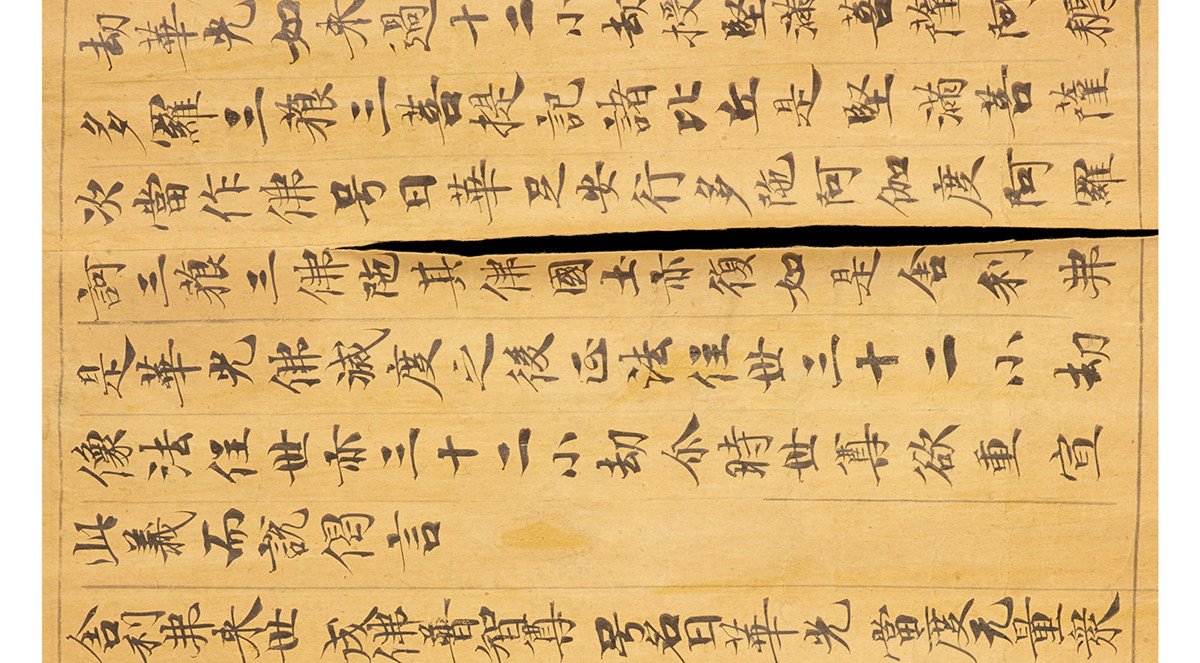 劫華光如來過十二小劫授堅滿菩薩阿耨
多羅三藐三菩提記諸比丘是堅滿菩薩
次當作佛号曰華足安行多陁阿伽度阿羅
訶三藐三佛陁其佛國土亦復如是舍利弗
是華光佛滅度之後正法住世三十二小劫
像法住世亦三十二小劫尒時世尊欲重宣
此義而說偈言
舍利弗來世 成佛普智尊 号名曰華光 當度无量眾